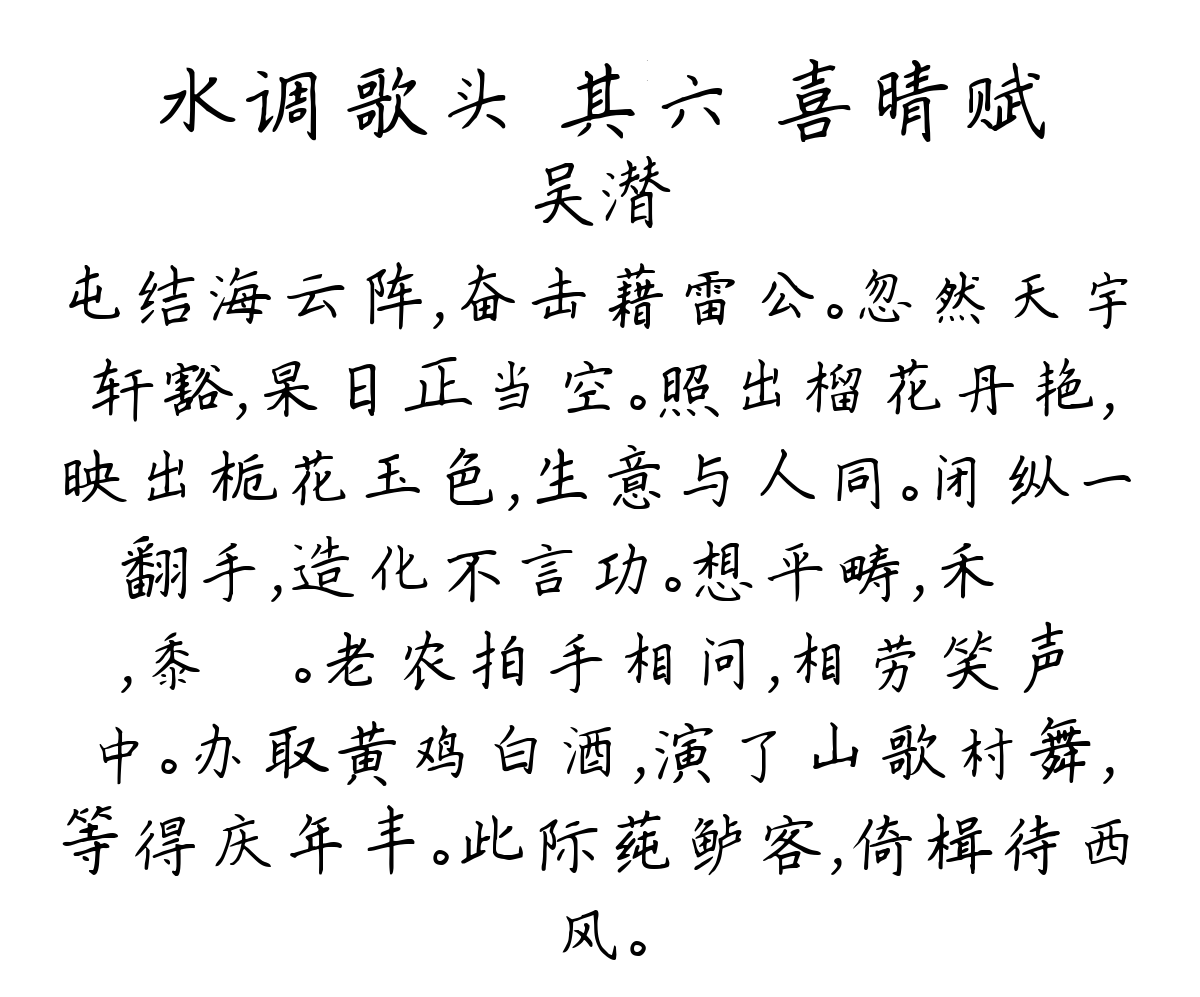 水调歌头 其六 喜晴赋
吴潜
屯结海云阵,奋击藉雷公。忽然天宇
轩豁,杲日正当空。照出榴花丹艳,
映出栀花玉色,生意与人同。闭纵一
翻手,造化不言功。想平畴,禾
,黍 。老农拍手相问,相劳笑声
中。办取黄鸡白酒,演了山歌村舞,
等得庆年丰。此际莼鲈客,倚楫待西
风。